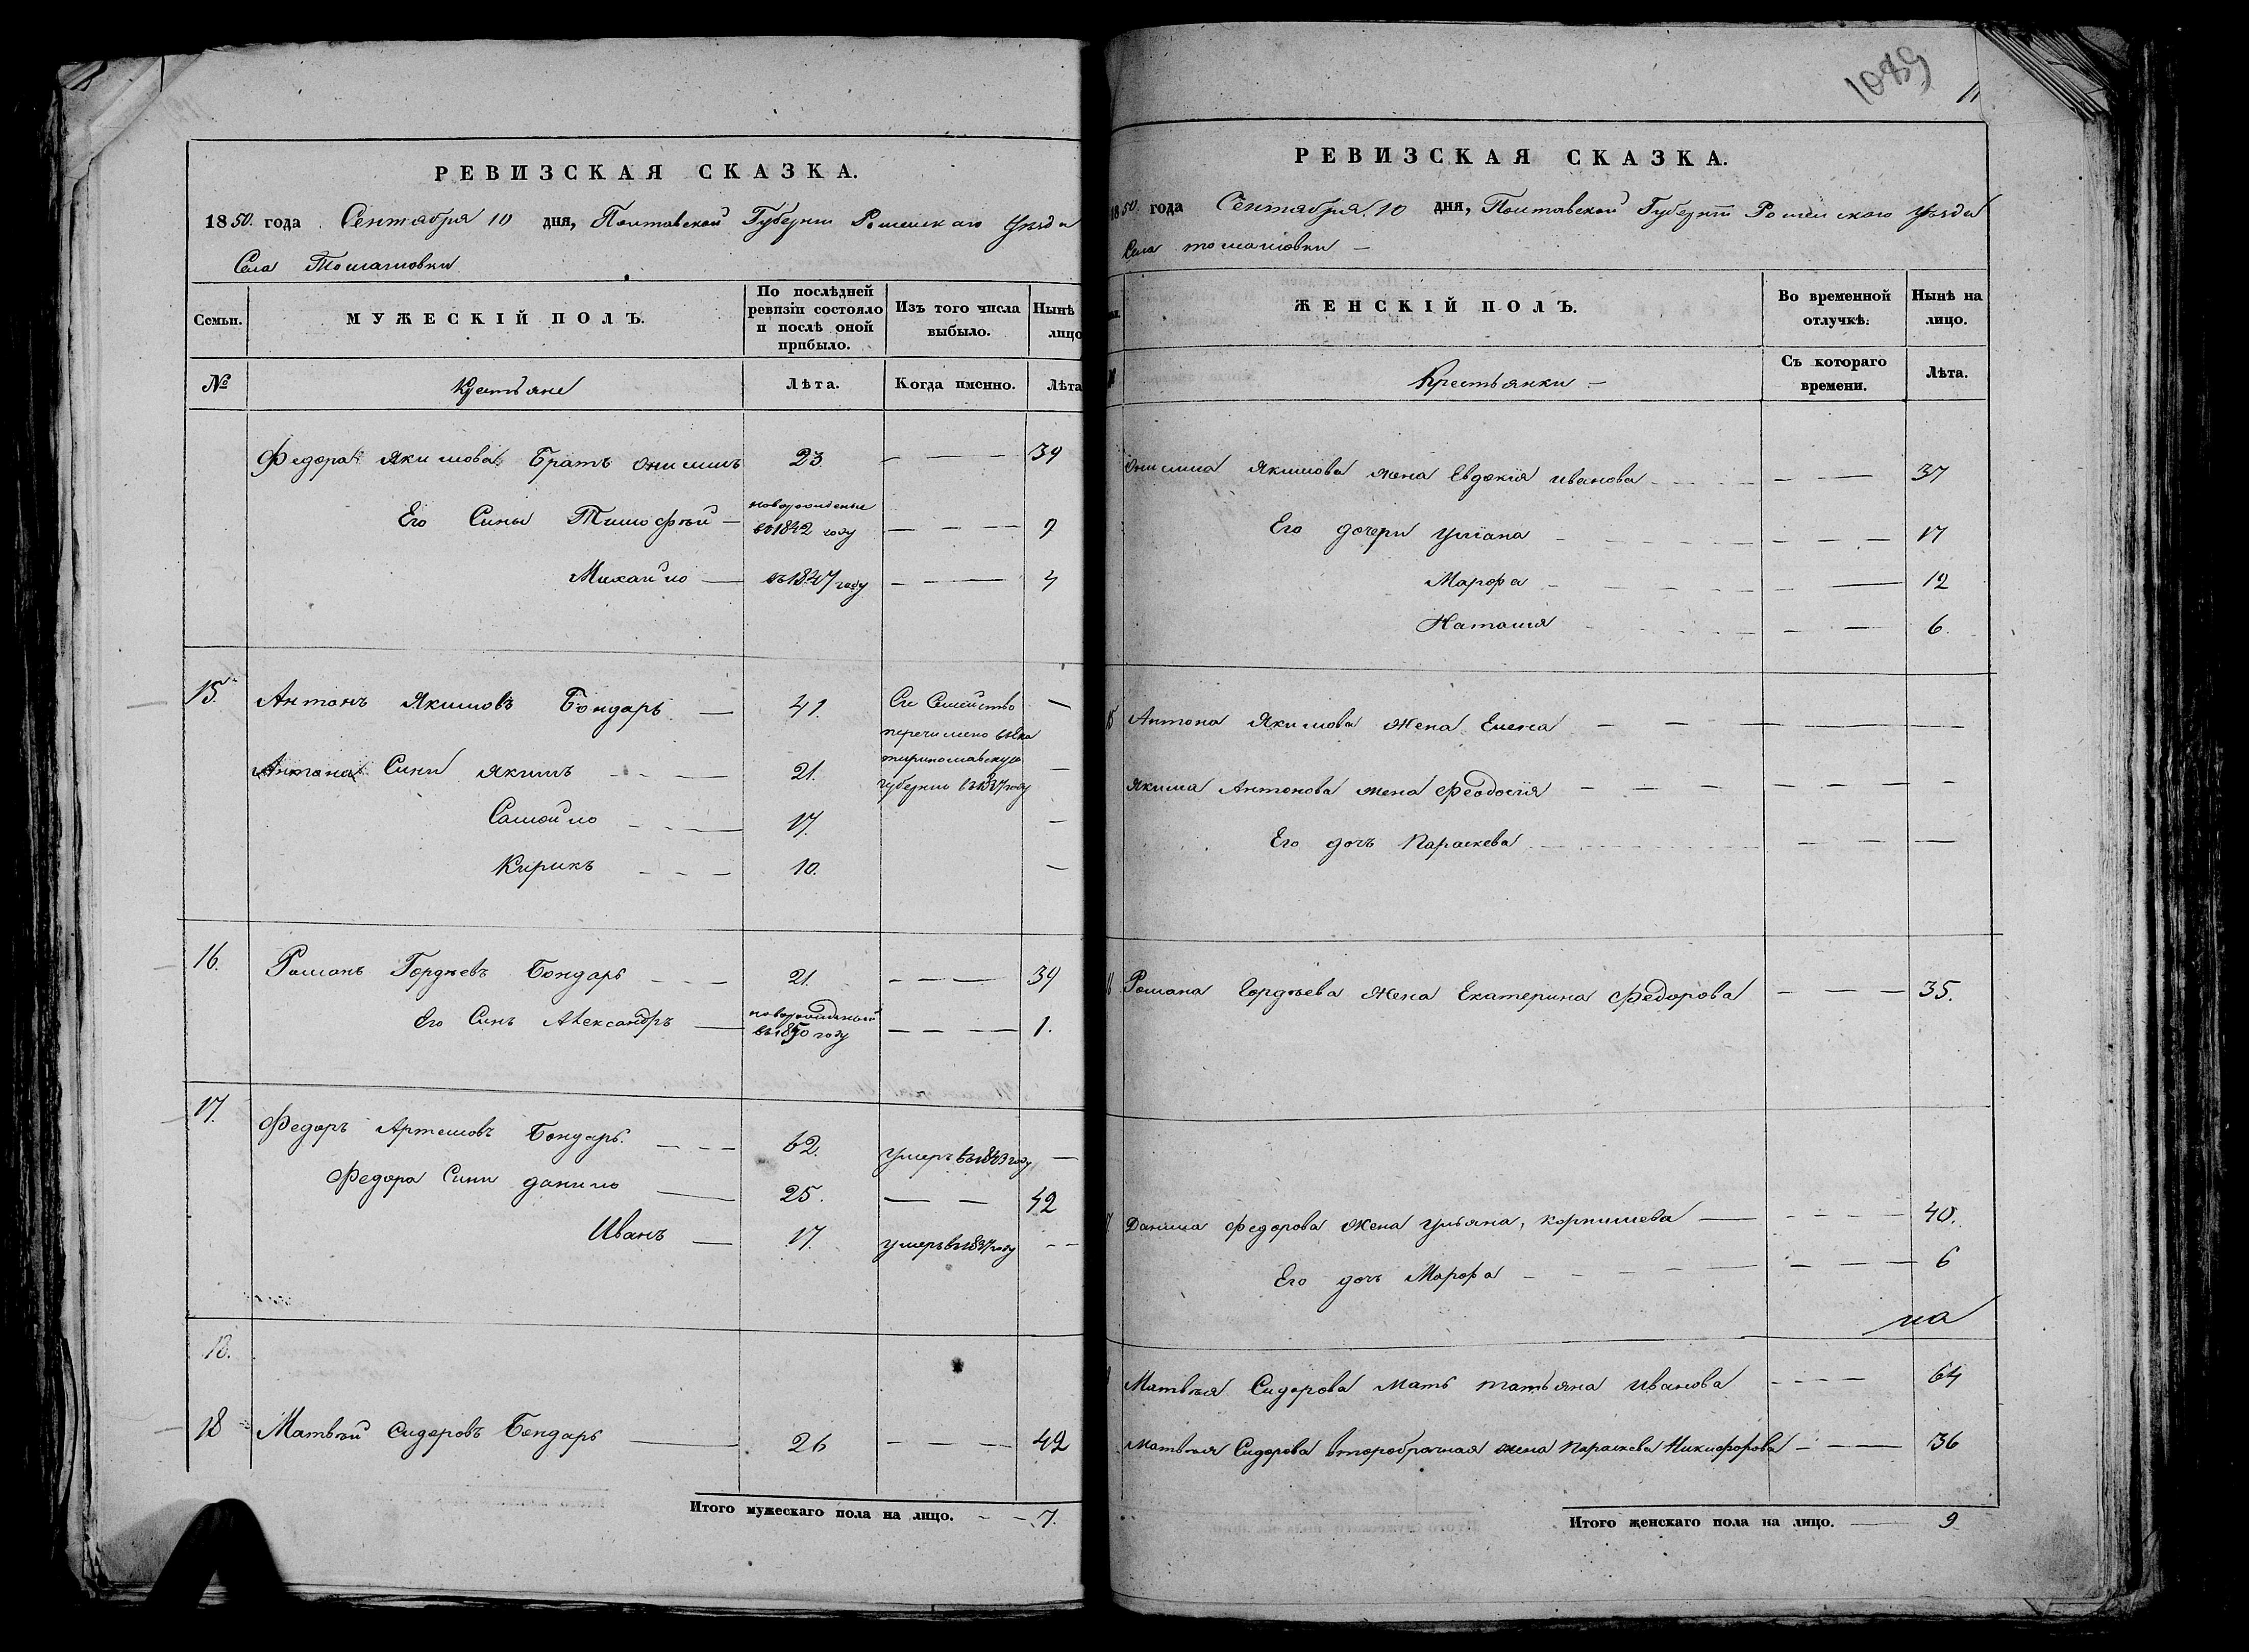 РЕВИЗСКАЯ СКАЗКА.
1850 года Сентября 10 дня, Полтавской Губернии Роменского Уезда
Села Томашовки
Семьи. МУЖЕСКІЙ ПОЛЪ. По послѣдней ревизіи состояло и послѣ оной прибыло. Изъ того числа выбыло. Нынѣ лицо
№ Крестьяне Лѣта. Когда именно. Лѣта
Федора Якимова Братъ Онисимъ 23 — — — 39
Его Сины Тимофѣй — новорожденые въ 1842 году — — — 9
Михайло — въ 1847 году — — — 4
15. Антонъ Якимовъ Бондарь — 41. Сіе Семейство —
перечислено въ Ека
Антона Сини Якимъ — — — 21. теринославскую —
губернию въ 1837 году
Самойло — — — 17. —
Кирикъ — — — 10. —
16. Романъ Гордѣевъ Бондарь — — — 21. — — — 39
Его Синъ Александръ — новорожденный въ 1850 году — — — 1.
17. Федоръ Артемовъ Бондарь. — — — 62. умеръ въ 1843 году —
Федора Сини Данило — 25. — — 42
Иванъ — 17. умеръ въ 1837 году — —
18 Матвѣй Сидоровъ Бондарь — 26 — — — 42
Итого мужескаго пола на лицо. — — 7.
1089
11
РЕВИЗСКАЯ СКАЗКА.
1850 года Сентября 10 дня, Полтавской Губерніи Роменского Уезда
Села Томашовки —
ЖЕНСКІЙ ПОЛЪ. Во временной отлучкѣ. Нынѣ на лицо.
Крестьянки — Съ котораго времени. Лѣта.
Онисима Якимова жена Евдокія Иванова — — — 37
Его дочери Уліана — — — 17
Марфа — — — 12
Наталия — — — 6.
15 Антона Якимова Жена Елена — — — —
Якима Антонова жена Феодосія — — — —
Его дочъ Параскева — — — —
Романа Гордѣева Жена Екатерина Федорова — — — 35.
Данила Федорова Жена Ульяна, Корнилиева — — — — 40.
Его дочъ Марфа — — — 6
Матвѣя Сидорова Мать Татьяна Иванова — — — 64
Матвѣя Сидорова второбрачная жена Параскева Никифорова — — — 36
Итого женскаго пола на лицо. — 9